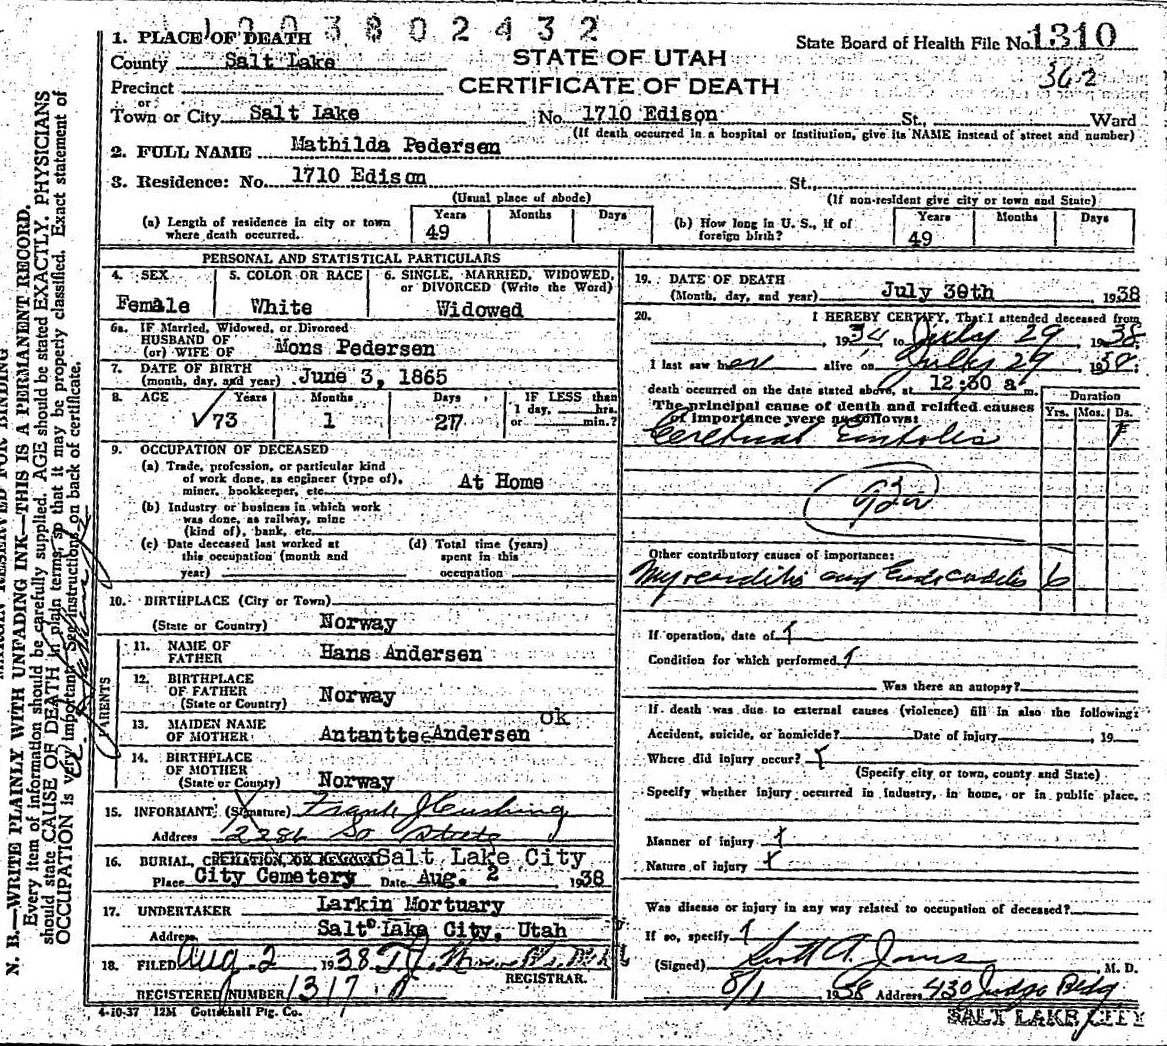 1203802432
1. PLACE OF DEATH
State Board of Health File No. 1310
County Salt Lake
STATE OF UTAH
362
Precinct
CERTIFICATE OF DEATH
or
Town or City Salt Lake No. 1710 Edison St., Ward
(If death occurred in a hospital or institution, give its NAME instead of street and number)
2. FULL NAME Mathilda Pedersen
3. Residence: No. 1710 Edison St.,
(Usual place of abode) (If non-resident give city or town and State)
(a) Length of residence in city or town where death occurred. Years 49 Months Days
(b) How long in U. S., if of foreign birth? Years 49 Months Days
PERSONAL AND STATISTICAL PARTICULARS
4. SEX Female
5. COLOR OR RACE White
6. SINGLE, MARRIED, WIDOWED,
or DIVORCED (Write the Word)
Widowed
6a. IF Married, Widowed, or Divorced
HUSBAND OF
(or) WIFE OF Mons Pedersen
7. DATE OF BIRTH
(month, day, and year) June 3, 1865
8. AGE Years Months Days IF LESS than
1 day, hrs.
or min.?
73 1 27
9. OCCUPATION OF DECEASED
(a) Trade, profession, or particular kind
of work done, as engineer (type of),
miner, bookkeeper, etc. At Home
(b) Industry or business in which work
was done, as railway, mine
(kind of), bank, etc.
(c) Date deceased last worked at
this occupation (month and
year)
(d) Total time (years)
spent in this
occupation
10. BIRTHPLACE (City or Town)
(State or Country) Norway
PARENTS
11. NAME OF
FATHER Hans Andersen
12. BIRTHPLACE
OF FATHER
(State or Country) Norway
13. MAIDEN NAME
OF MOTHER Antanttee Andersen ok
14. BIRTHPLACE
OF MOTHER
(State or Country) Norway
15. INFORMANT (Signature) Frank J Cushing
Address 2286 So State
16. BURIAL, CREMATION, OR REMOVAL Salt Lake City
Place City Cemetery Date Aug. 2 1938
17. UNDERTAKER Larkin Mortuary
Address Salt Lake City, Utah
18. FILED Aug. 2 1938
REGISTRAR.
REGISTERED NUMBER 1317
4-10-37 12M Gottschall Ptg. Co.
19. DATE OF DEATH
(Month, day, and year) July 30th, 1938
20. I HEREBY CERTIFY, That I attended deceased from
, 1934 to July 29, 1938
I last saw her alive on July 29 1938;
death occurred on the date stated above, at 12:30 a m.
The principal cause of death and related causes
of importance were as follows:
Duration
Yrs. Mos. Ds.
Cerebral Embolis
Other contributory causes of importance:
Myocarditis and Endocarditis 6
If operation, date of
Condition for which performed
Was there an autopsy?
If death was due to external causes (violence) fill in also the following:
Accident, suicide, or homicide? Date of injury , 19
Where did injury occur?
(Specify city or town, county and State)
Specify whether injury occurred in industry, in home, or in public place.
Manner of injury
Nature of injury
Was disease or injury in any way related to occupation of deceased?
If so, specify
(Signed) Scott A. Jones M. D.
8/1 1938 Address 430 Judge Bldg
SALT LAKE CITY
N. B.—WRITE PLAINLY WITH UNFADING INK—THIS IS A PERMANENT RECORD.
Every item of information should be carefully supplied. AGE should be stated EXACTLY. PHYSICIANS
should state CAUSE OF DEATH in plain terms, so that it may be properly classified. Exact statement of
OCCUPATION is very important. See instructions on back of certificate.